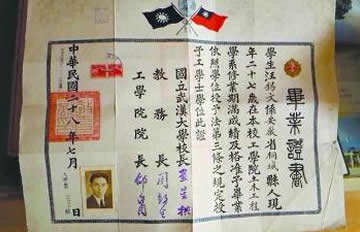 畢業證書
學生汪錫文係安徽省桐城縣人現
年二十七歲在本校工學院土木工程
學系修業期滿成績及格准予畢業
依照學位授予法第三條之規定授
予工學士學位此證
國立武漢大學校長王星拱
教務長
工學院院長邵逸周
中華民國二十八年七月 日